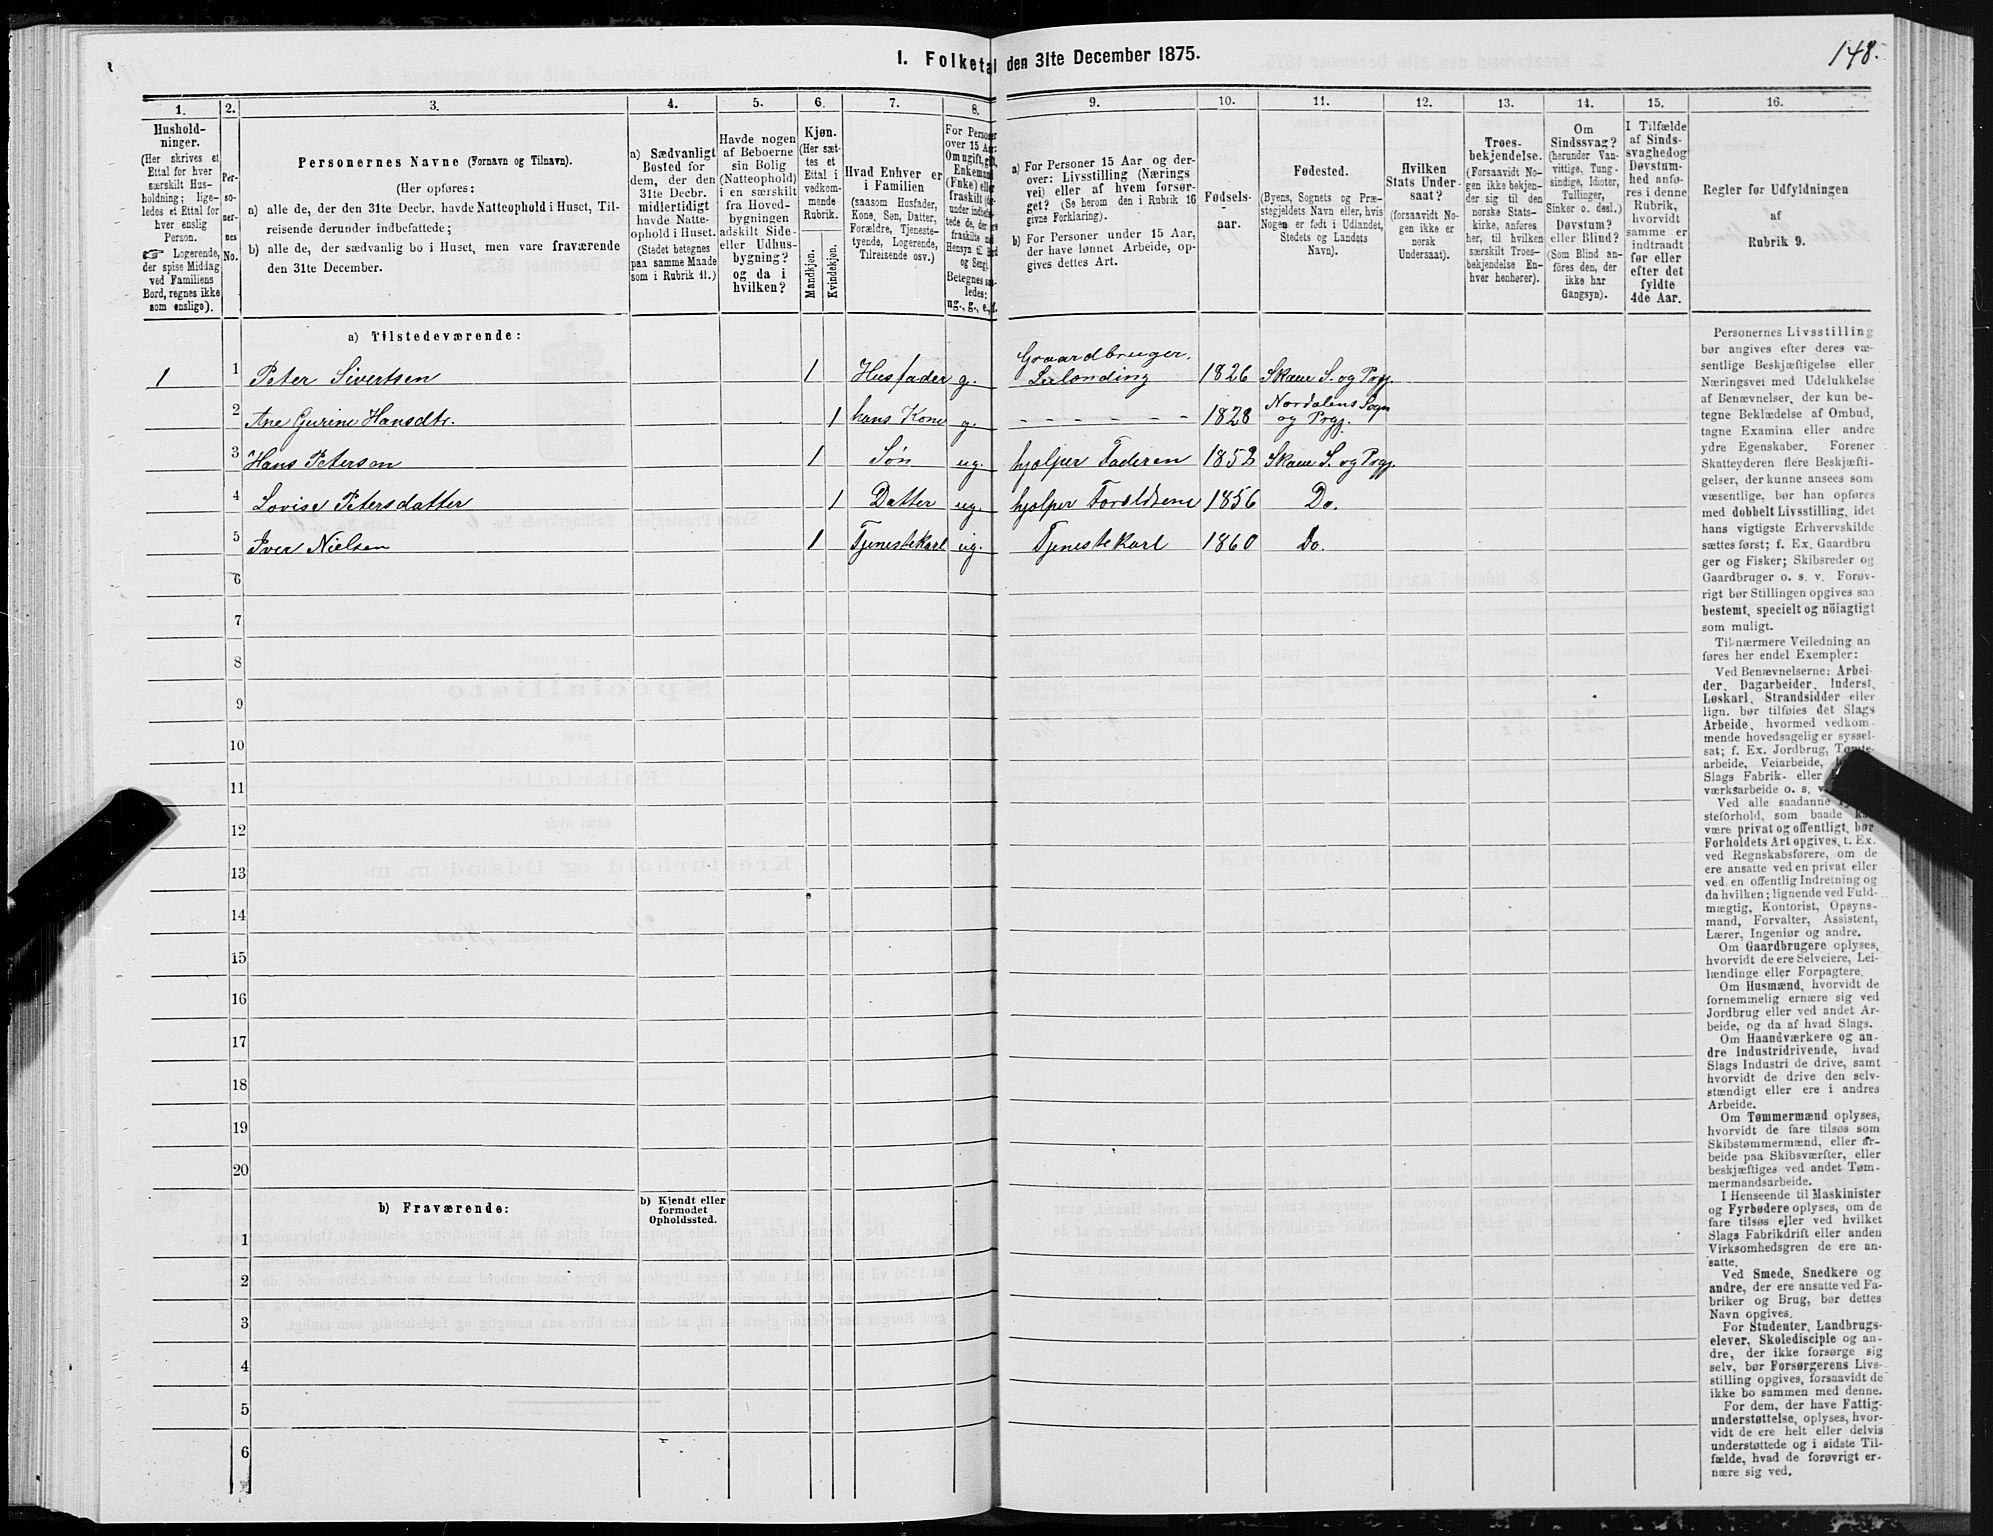 I. Folketal den 31te December 1875.
148.
1.
2.
3.
4.
5.
6.
7.
8.
9.
10.
11.
12.
13.
14.
15.
16.
Hushold-
ninger.
(Her skrives et
Ettal for hver
særskilt Hus-
holdning; lige-
ledes et Ettal for
hver enslig
Person.
☞ Logerende,
der spise Middag
ved Familiens
Bord, regnes ikke
som enslige).
Per-
so-
ner-
nes
No.
Personernes Navne (Fornavn og Tilnavn).
(Her opføres:
a) alle de, der den 31te Decbr. havde Natteophold i Huset, Til-
reisende derunder indbefattede;
b) alle de, der sædvanlig bo i Huset, men vare fraværende
den 31te December.
a) Sædvanligt
Bosted for
dem, der den
31te Decbr.
midlertidigt
havde Natte-
ophold i Huset.
(Stedet betegnes
paa samme Maade
som i Rubrik 11.)
Havde nogen
af Beboerne
sin Bolig
(Natteophold)
i en særskilt
fra Hoved-
bygningen
adskilt Side-
eller Udhus-
bygning?
og da i
hvilken?
Kjøn.
(Her sæt-
tes et
Ettal i
vedkom-
mende
Rubrik.
Mandkjøn.
Kvindekjøn.
Hvad Enhver er
i Familien
(saasom Husfader,
Kone, Søn, Datter,
Forældre, Tjeneste-
tyende, Logerende,
Tilreisende osv.)
For Personer
over 15 Aar:
Om ugift, gift,
Enkemand
(Enke) eller
fraskilt
Betegnes saa-
ledes:
ug., g., e., f.
a) For Personer 15 Aar og der-
over: Livsstilling (Nærings
vei) eller af hvem forsør-
get? (Se herom den i Rubrik 16
givne Forklaring).
b) For Personer under 15 Aar,
der have lønnet Arbeide, op-
gives dettes Art.
Fødsels-
aar.
Fødested.
(Byens, Sognets og Præ-
stegjeldets Navn eller, hvis
Nogen er født i Udlandet,
Stedets og Landets
Navn).
Hvilken
Stats Under-
saat?
(forsaavidt No-
gen ikke er
norsk
Undersaat).
Troes-
bekjendelse.
(Forsaavidt No-
gen ikke bekjen-
der sig til den
norske Stats-
kirke, anføres
her, til hvilken
særskilt Troes-
bekjendelse En-
hver henhører).
Om
Sindssvag?
(herunder Van-
vittige, Tung-
sindige, Idioter,
Tullinger,
Sinker o. desl.)
Døvstum?
eller Blind?
(Som Blind an-
føres den, der
ikke har
Gangsyn).
I Tilfælde
af Sinds-
svaghed og
Døvstum-
hed anfø-
res i denne
Rubrik,
hvorvidt
samme er
indtraadt
før eller
efter det
fyldte
4de Aar.
Regler før Udfyldningen
af
Rubrik 9.
a) Tilstedeværende:
1 1 Peter Sivertsen 1 Husfader g. Gaardbruger, Leilending 1826 Skaue S. og Prgj.
2 Ane Gurine Hansdtr. 1 hans Kone g. - - - - - - 1828 Nordalens Sogn og Prgj.
3 Hans Petersen 1 Søn ug. hjælper Faderen 1852 Skaue S. og Prgj.
4 Lovise Petersdatter 1 Datter ug. hjælper Foreldrene 1856 Do.
5 Iver Nielsen 1 Tjenestekarl ug. Tjenestekarl 1860 Do.
6
7
8
9
10
11
12
13
14
15
16
17
18
19
20
b) Fraværende:
b) Kjendt eller
formodet
Opholdssted.
1
2
3
4
5
6
Personernes Livsstilling
bør angives efter deres væ-
sentlige Beskjæftigelse eller
Næringsvei med Udelukkelse
af Benævnelser, der kun be-
tegne Beklædelse af Ombud,
tagne Examina eller andre
ydre Egenskaber. Forener
Skatteyderen flere Beskjæfti-
gelser, der kunne ansees som
væsentlige, bør han opføres
med dobbelt Livsstilling, idet
hans vigtigste Erhvervskilde
sættes først; f. Ex. Gaardbru-
ger og Fisker; Skibsreder og
Gaardbruger o. s. v. Forøv-
rigt bør Stillingen opgives saa
bestemt, specielt og nöiagtigt
som muligt.
Til nærmere Veiledning an
føres her endel Exempler:
Ved Benævnelserne: Arbei-
der, Dagarbeider, Inderst,
Løskarl, Strandsidder eller
lign. bør tilføies det Slags
Arbeide, hvormed vedkom-
mende hovedsagelig er syssel-
sat; f. Ex. Jordbrug, Tomte-
arbeide, Veiarbeide,
Slags Fabrik- eller
værksarbeide o. s. v.
Ved alle saadanne
steforhold, som baade kan
være privat og offentligt, bør
Forholdets Art opgives, t. Ex.
ved Regnskabsførere, om de
ere ansatte ved en privat eller
ved en offentlig Indretning og
da hvilken; lignende ved Fuld-
mægtig, Kontorist, Opsyns-
mand, Forvalter, Assistent,
Lærer, Ingeniør og andre.
Om Gaardbrugere oplyses,
hvorvidt de ere Selveiere, Lei-
lændinge eller Forpagtere.
Om Husmænd, hvorvidt de
fornemmelig ernære sig ved
Jordbrug eller ved andet Ar-
beide, og da af hvad Slags.
Om Haandværkere og an-
dre Industridrivende, hvad
Slags Industri de drive, samt
hvorvidt de drive den selv-
stændigt eller ere i andres
Arbeide.
Om Tømmermænd oplyses,
hvorvidt de fare tilsøs som
Skibstømmermænd, eller ar-
beide paa Skibsværfter, eller
beskjæftiges ved andet Tøm-
mermandsarbeide.
I Henseende til Maskinister
og Fyrbødere oplyses, om de
fare tilsøs eller ved hvilket
Slags Fabrikdrift eller anden
Virksomhedsgren de ere an-
satte.
Ved Smede, Snedkere og
andre, der ere ansatte ved Fa-
briker og Brug, bør dettes
Navn opgives.
For Studenter, Landbrugs-
elever, Skoledisciple og an-
dre, der ikke forsørge sig
selv, bør Forsørgerens Livs-
stilling opgives, forsaavidt de
ikke bo sammen med denne.
For dem, der have Fattig-
understøttelse, oplyses, hvor-
vidt de ere helt eller delvis
understøttede og i sidste Til-
fælde, hvad de forøvrigt er-
nære sig ved.